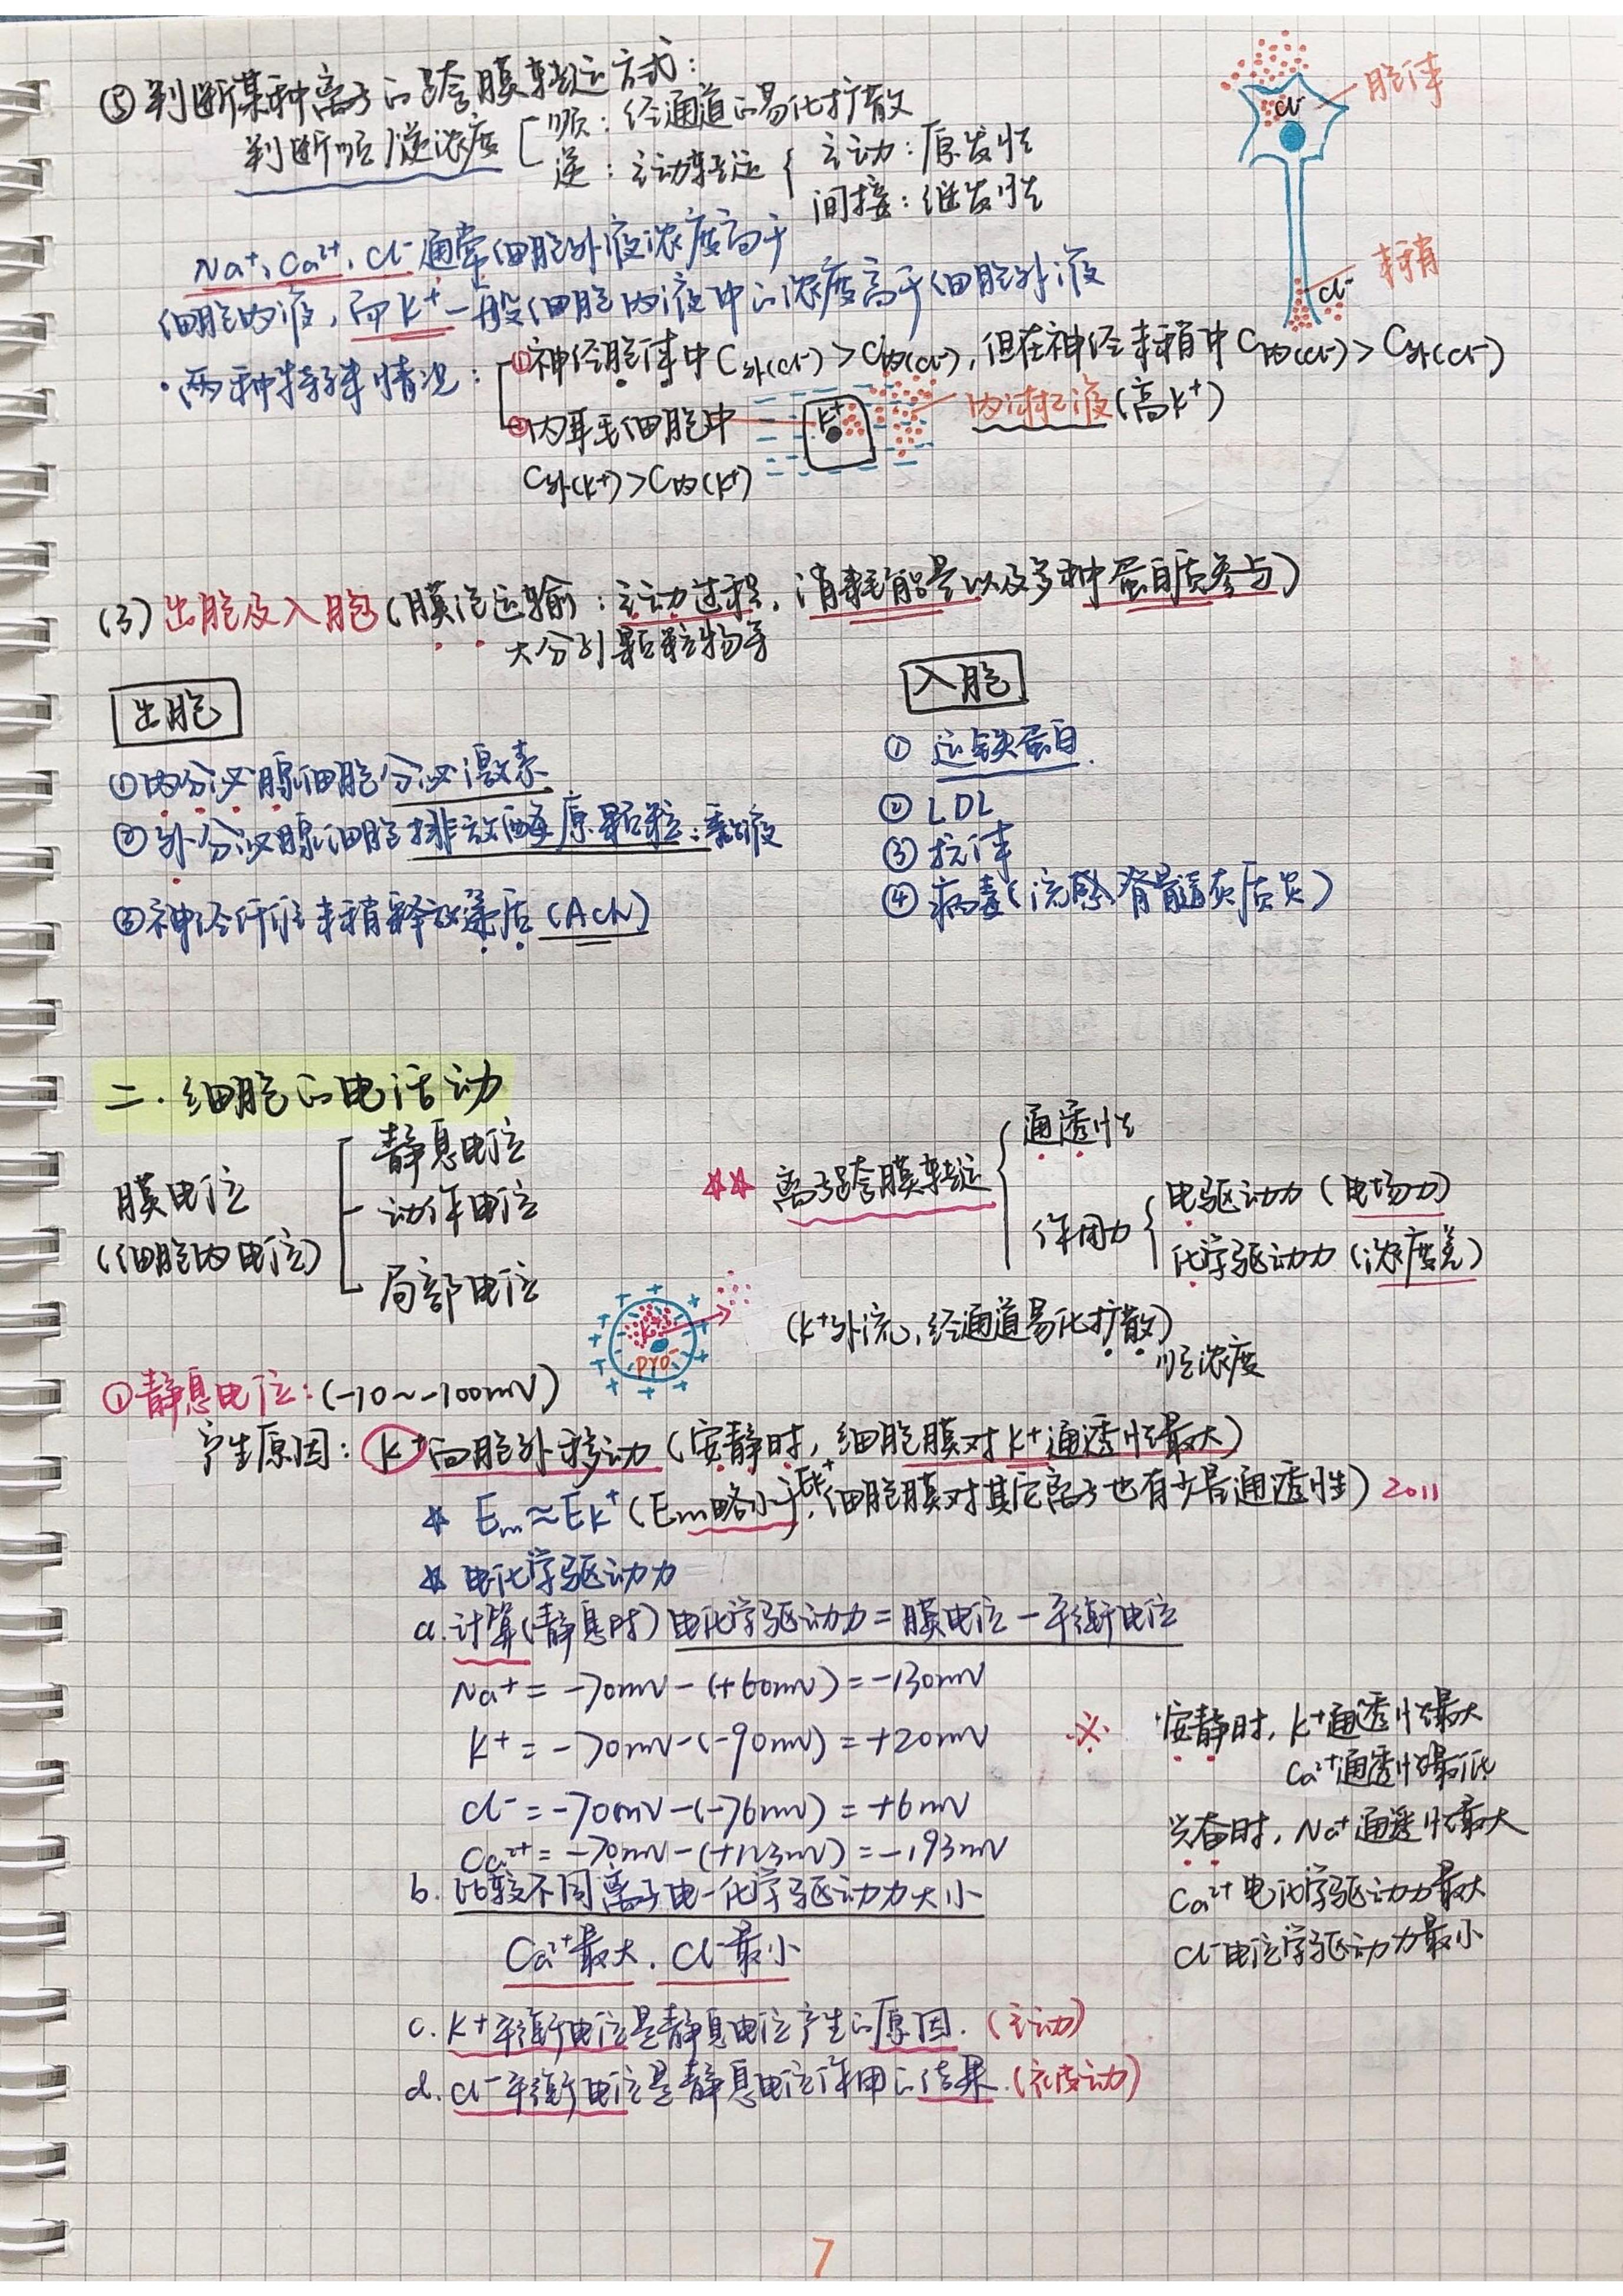 ⑤判断某种离子的跨膜转运方式：
判断顺/逆浓度
顺：经通道的易化扩散
逆：主动转运
主动：原发性
间接：继发性
Cl⁻
胞体
Cl⁻
末梢
Na⁺、Ca²⁺、Cl⁻通常细胞外液浓度高于
细胞内液，而K⁺一般细胞内液中的浓度高于细胞外液
·两种特殊情况：
①神经胞体中C外(Cl⁻)>C内(Cl⁻)，但在神经末梢中C内(Cl⁻)>C外(Cl⁻)
②内耳毛细胞中
C外(K⁺)>C内(K⁺)
K⁺
内淋巴液(高K⁺)
(3)出胞及入胞(膜泡运输)：主动过程，消耗能量以及多种蛋白质参与)
大分子颗粒物等
出胞
①内分泌腺细胞分泌激素
②外分泌腺细胞排放酶原颗粒：黏液
③神经纤维末梢释放递质(ACh)
入胞
①运铁蛋白
②LDL
③抗体
④病毒(流感 脊髓灰质炎)
二.细胞的电活动
膜电位
(细胞内电位)
静息电位
动作电位
局部电位
☆☆离子跨膜转运
通透性
作用力
电驱动力(电场力)
化学驱动力(浓度差)
K⁺
pro⁻
(K⁺外流，经通道易化扩散)
顺浓度
①静息电位：(-10～-100mV)
产生原因：K⁺向胞外移动(安静时，细胞膜对K⁺通透性最大)
☆ Em≈EK⁺(Em略小于EK⁺，细胞膜对其它离子也有少量通透性) 2011
☆ 电化学驱动力
a.计算(静息时)电化学驱动力=膜电位-平衡电位
Na⁺=-70mV-(+60mV)=-130mV
K⁺=-70mV-(-90mV)=+20mV
Cl⁻=-70mV-(-76mV)=+6mV
Ca²⁺=-70mV-(+123mV)=-193mV
b.比较不同离子电-化学驱动力大小
Ca²⁺最大，Cl⁻最小
c.K⁺平衡电位是静息电位产生的原因.(主动)
d.Cl⁻平衡电位是静息电位作用的结果.(被动)
※ ·安静时，K⁺通透性最大
Ca²⁺通透性最低
兴奋时，Na⁺通透性最大
Ca²⁺电化学驱动力最大
Cl⁻电化学驱动力最小
7